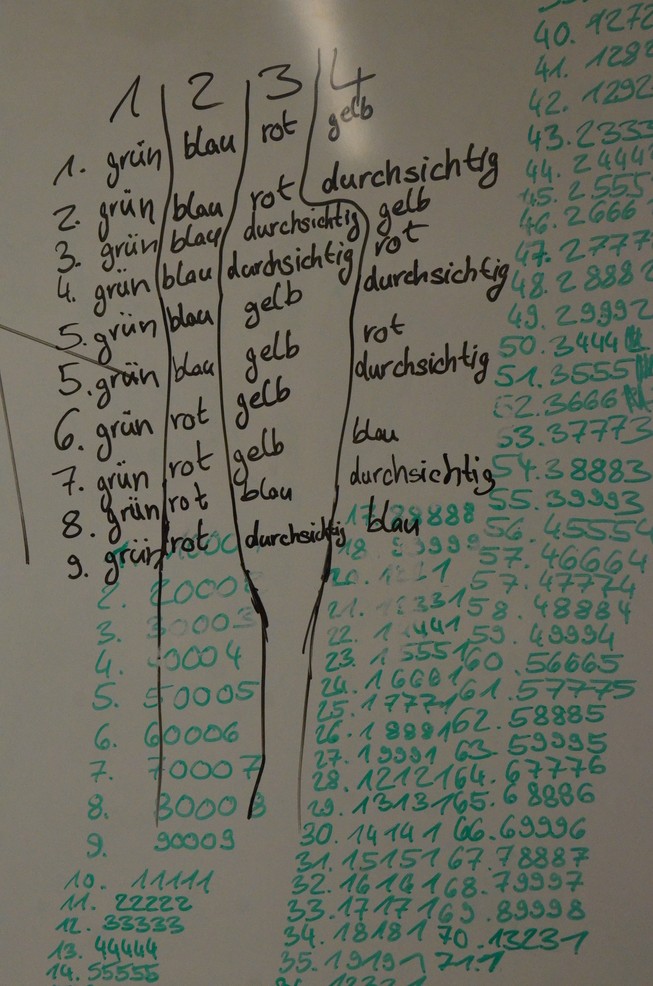 1 2 3 4
1. grün blau rot gelb
2. grün blau rot durchsichtig
3. grün blau durchsichtig gelb
4. grün blau durchsichtig rot
5. grün blau gelb durchsichtig
5. grün blau gelb rot
6. grün rot gelb durchsichtig
7. grün rot gelb blau
8. grün rot blau durchsichtig
9. grün rot durchsichtig blau
2.
3.
4.
5. 50005
6. 60006
7. 70007
8.
9. 90009
10. 11111
11. 22222
12. 33333
13. 44444
14. 55555
17.
18.
20.
21.
22.
23.
24. 16661
25. 17771
26. 18881
27. 19991
28. 12121
29. 13131
30. 14141
31. 15151
32. 16161
33. 17171
34. 18181
35. 19191
40. 1272
41. 1282
42. 1292
43. 2333
44. 2444
45. 2555
46. 2666
47. 2777
48. 28882
49. 29992
50. 3444
51. 3555
52. 3666
53. 37773
54. 38883
55. 39993
56. 45554
57. 46664
57. 47774
58. 48884
59. 49994
60. 56665
61. 57775
62. 58885
63. 59995
64. 67776
65. 68886
66. 69996
67. 78887
68. 79997
69. 89998
70. 13231
71. 1